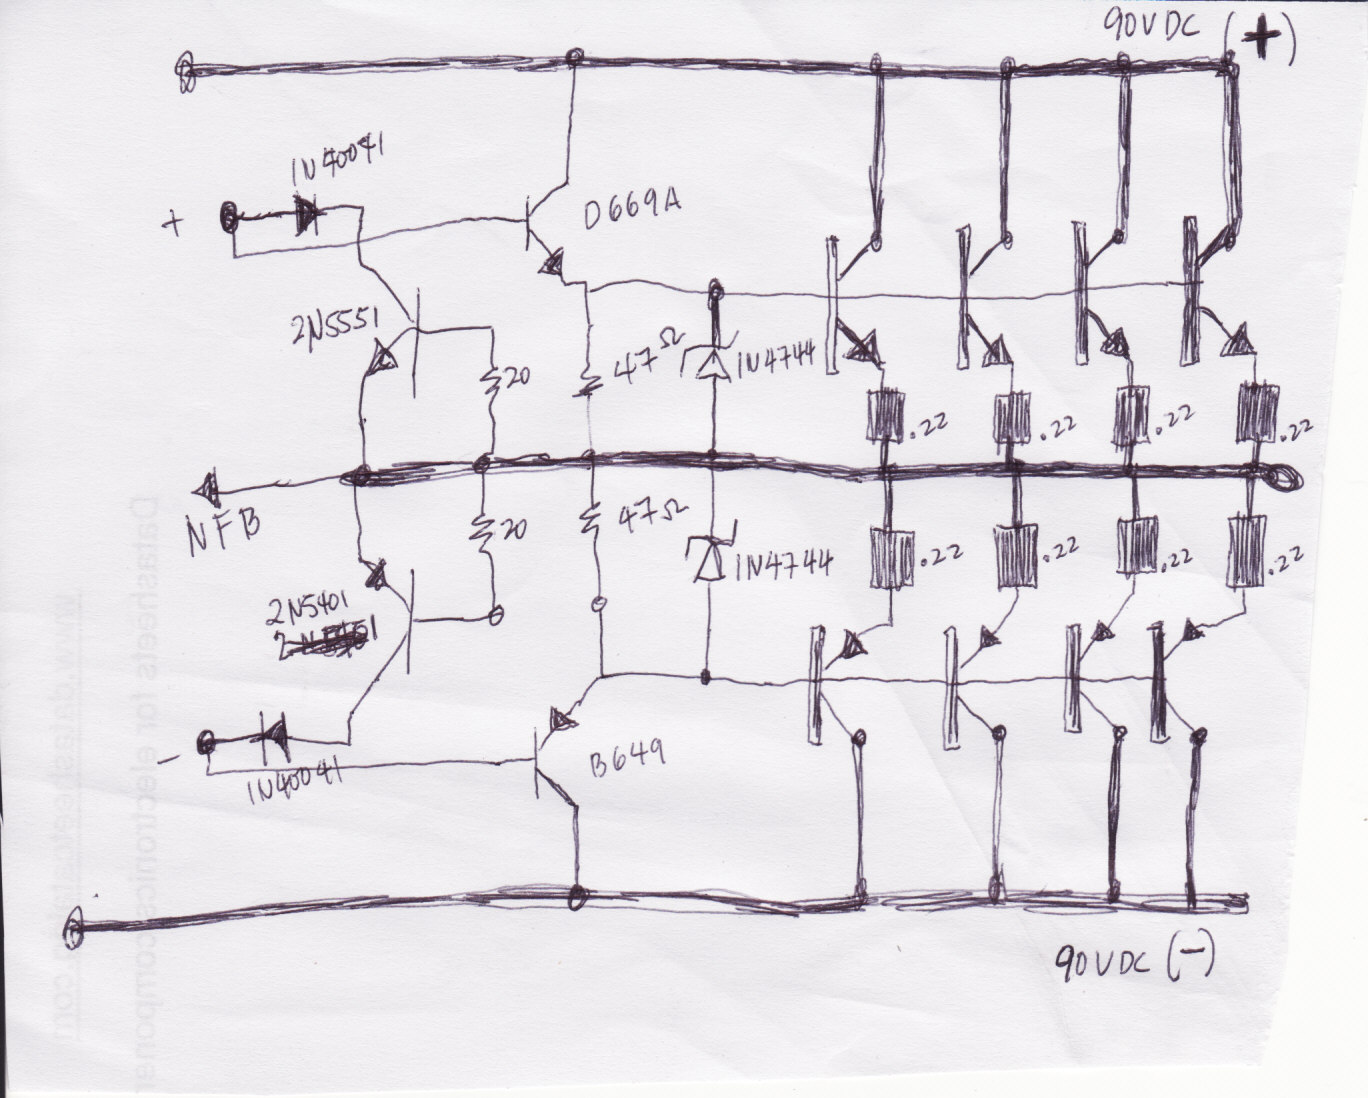 90VDC (+)
1N40041
+
D669A
2N5551
20
47Ω
1N4744
.22
.22
.22
.22
NFB
20
47Ω
1N4744
.22
.22
.22
.22
2N5401
-
1N40041
B649
90VDC (-)
Datasheets for electronics componen
www.datasheetcatalog.com